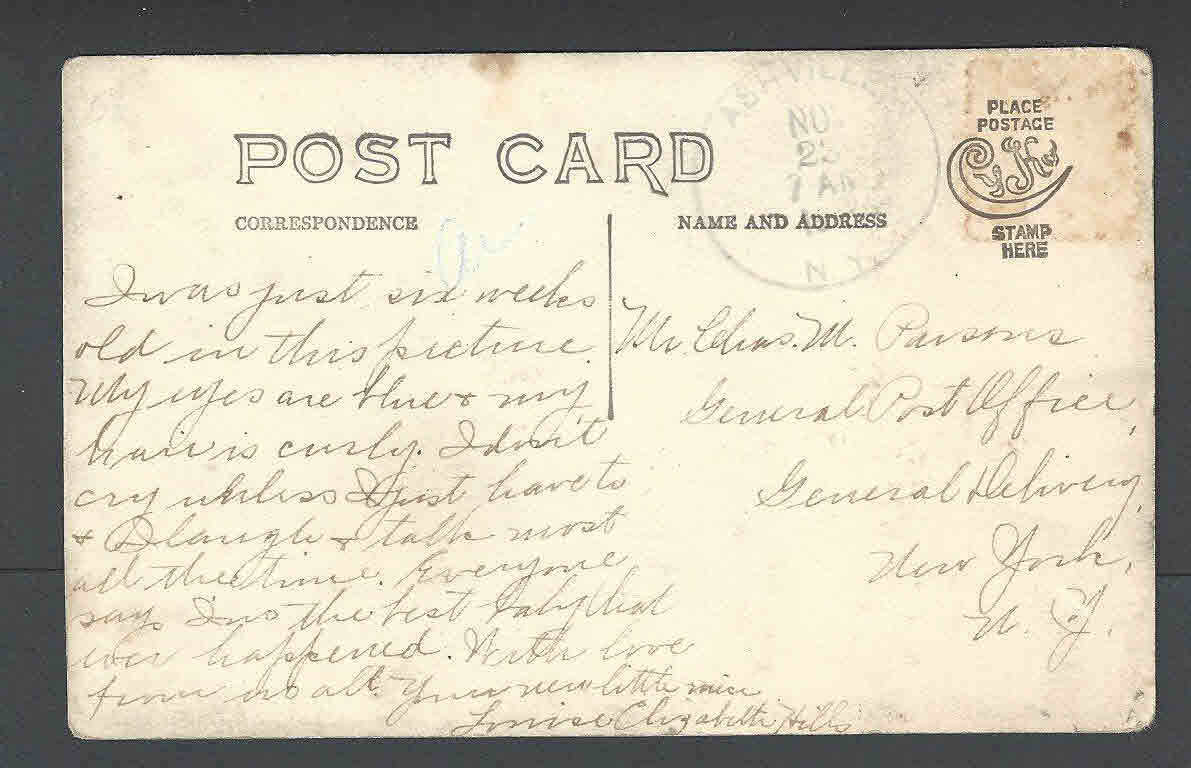 POST CARD
CORRESPONDENCE
NAME AND ADDRESS
ASHVILLE
NOV
7 AM
N.Y.
PLACE
POSTAGE
CyKo
STAMP
HERE
I was just six weeks
old in this picture.
My eyes are blue & my
hair is curly. I don't
cry unless I just have to
& I laugh & talk most
all the time. Everyone
says I was the best baby that
ever happened. With love
from us all. Your new little niece
Louise Elizabeth Hills
Mr. Chas. M. Parsons
General Post Office,
General Delivery,
New York,
N. Y.